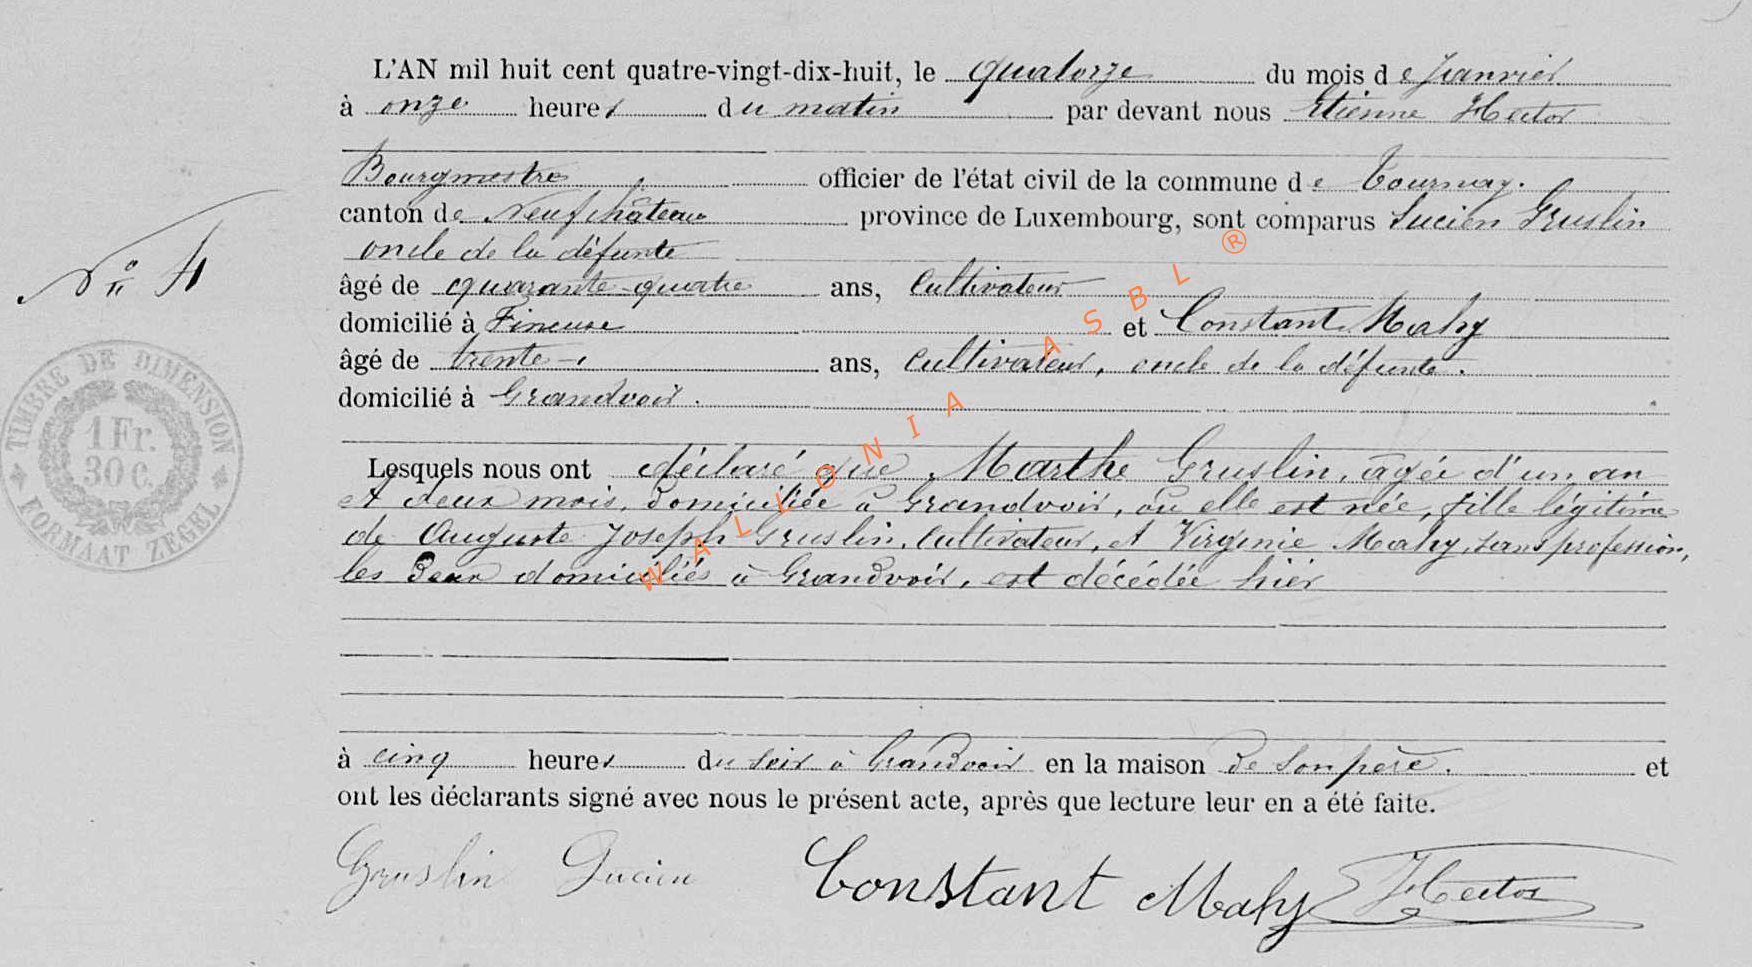 L'AN mil huit cent quatre-vingt-dix-huit, le quatorze du mois de Janvier
à onze heures du matin par devant nous Etienne Hector
Bourgmestre officier de l'état civil de la commune de Tournay.
canton de Neufchâteau province de Luxembourg, sont comparus Lucien Gruslin
oncle de la défunte
âgé de quarante-quatre ans, Cultivateur
domicilié à Fineuse et Constant Mahy
âgé de trente ans, Cultivateur, oncle de la défunte.
domicilié à Grandvoir.
N° 4
TIMBRE DE DIMENSION
1 Fr.
30 C.
FORMAAT ZEGEL
Lesquels nous ont déclaré que Marthe Gruslin, âgée d'un an
et deux mois, domiciliée à Grandvoir, où elle est née, fille légitime
de Auguste Joseph Gruslin, Cultivateur, et Virginie Mahy, sans profession,
les deux domiciliés à Grandvoir, est décédée hier
à cinq heures du soir à Grandvoir en la maison de son père. et
ont les déclarants signé avec nous le présent acte, après que lecture leur en a été faite.
Gruslin Lucien Constant Mahy Hector
WALLONIA ASBL ®